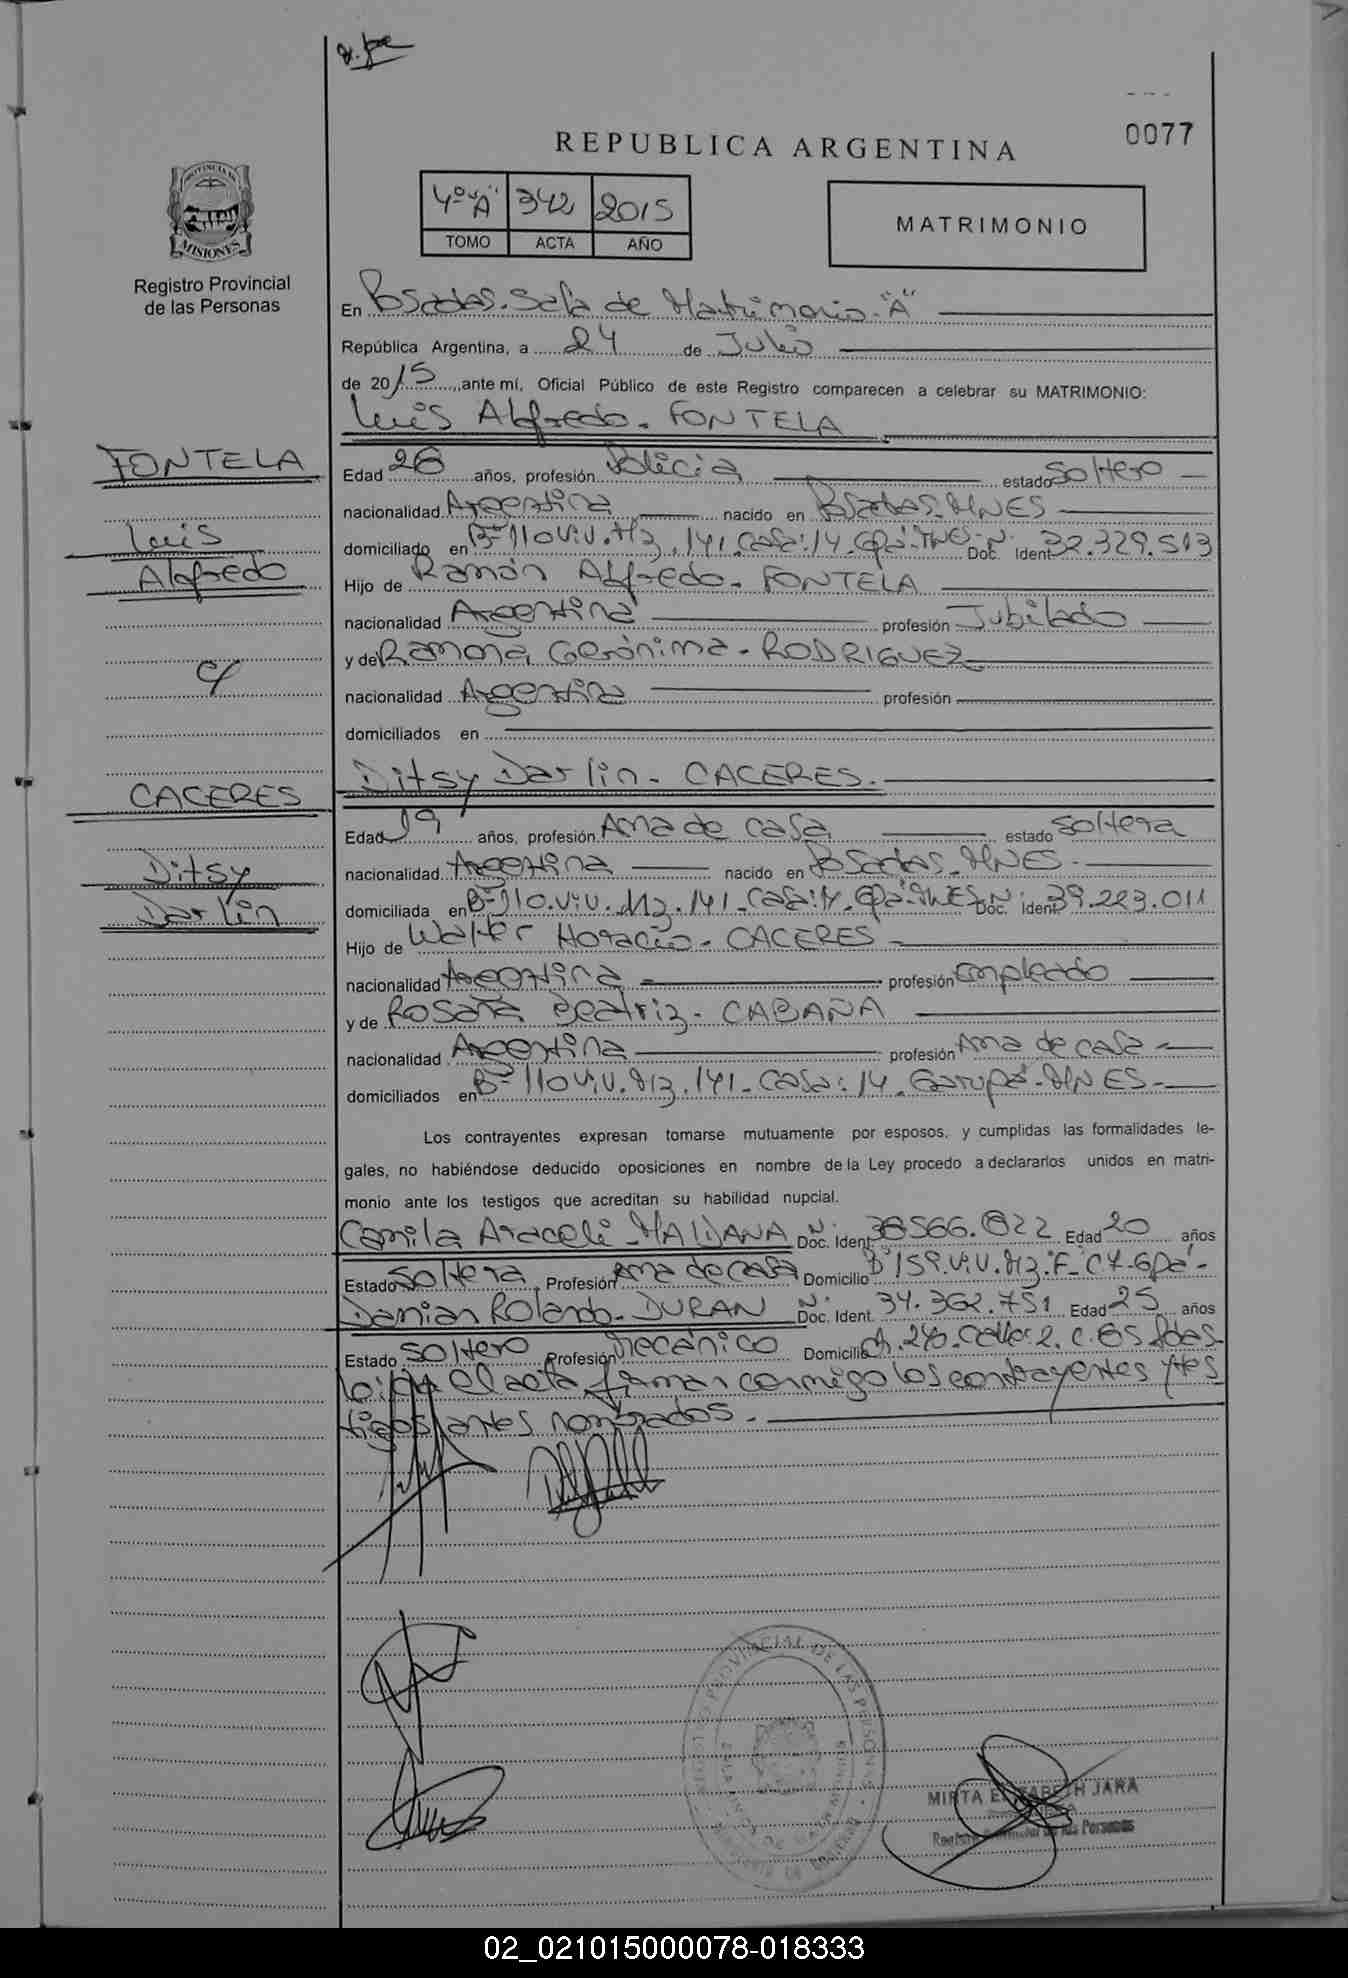 0077
REPUBLICA ARGENTINA
4º "A" 342 2015
TOMO ACTA AÑO
MATRIMONIO
PROVINCIA DE
MISIONES
Registro Provincial
de las Personas
En Posadas. Sala de Matrimonio "A"
República Argentina, a 24 de Julio
de 2015, ante mí, Oficial Público de este Registro comparecen a celebrar su MATRIMONIO:
Luis Alfredo. FONTELA
FONTELA
Luis
Alfredo
c/
CACERES
Ditsy
Darlin
Edad 28 años, profesión Policia estado soltero
nacionalidad Argentina nacido en Posadas. MNES
domiciliado en Bº 110 Viv. Mz. 141. Casa: 14. Gpá. MNES Nº Doc. Ident. 32.329.513
Hijo de Ramón Alfredo. FONTELA
nacionalidad Argentina profesión Jubilado
y de Ramona Gerónima. RODRIGUEZ
nacionalidad Argentina profesión
domiciliados en
Ditsy Darlin. CACERES.
Edad 19 años, profesión Ama de casa estado soltera
nacionalidad Argentina nacido en Posadas. MNES.
domiciliada en Bº 110. Viv. Mz. 141. Casa: 14. Gpá. MNES Nº Doc. Ident. 39.223.011
Hijo de Walter Horacio. CACERES
nacionalidad Argentina profesión Empleado
y de Rosana Beatriz. CABAÑA
nacionalidad Argentina profesión Ama de casa
domiciliados en Bº 110 Viv. Mz. 141. Casa: 14. Garupá. MNES.
Los contrayentes expresan tomarse mutuamente por esposos, y cumplidas las formalidades le-
gales, no habiéndose deducido oposiciones en nombre de la Ley procedo a declararlos unidos en matri-
monio ante los testigos que acreditan su habilidad nupcial.
Camila Araceli MALDANA Nº Doc. Ident. 38566.822 Edad 20 años
Estado soltera Profesión Ama de casa Domicilio Bº 159. Viv. Mz. F. C 7. Gpá.
Damian Rolando. DURAN Nº Doc. Ident. 34.362.751 Edad 25 años
Estado soltero Profesión Mecánico Domicilio Ch. 240. Calle: 2. C. 65 Pdas.
Leida el acta firman conmigo los contrayentes y tes
tigos antes nombrados.
REGISTRO PROVINCIAL DE LAS PERSONAS
MIRTA ELIZABETH JARA
Registro Provincial de las Personas
02_021015000078-018333